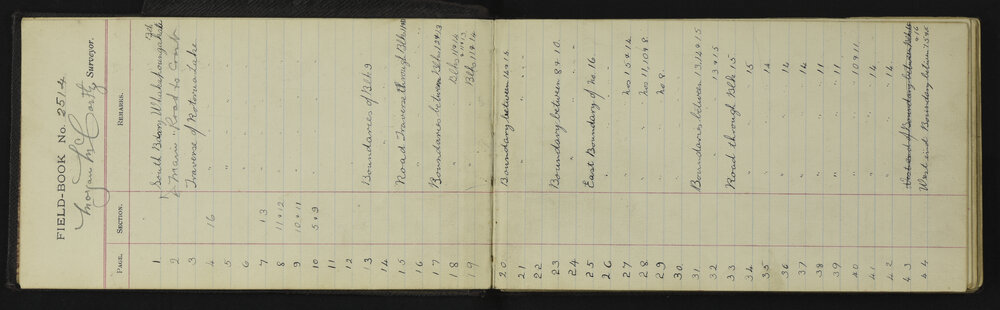 FIELD-BOOK No. 2514
Morgan McCarthy Surveyor.
PAGE. SECTION. REMARKS.
1 South Bdry
2 Main Road to
3 Traverse of Rotomalake
4 16 "
5 "
6
7 13 "
8 11 & 12 "
9 10 & 11 "
10 5 & 9 "
11
12
13 Boundaries of Blk 9
14 "
15 Road Traverse through Blk
16 "
17 Boundaries between Blks 12 & 13
18 " Blks 11 & 14
19 " Blks 11 & 14
20 Boundary between 14 & 15
21 " "
22
23 Boundary between 8 & 10.
24 " "
25 East Boundary of No. 16.
26
27 " No 15 & 14
28 " No 11, 10 & 8.
29 " No 8.
30
31 Boundaries between 13, 14 & 15
32 " 13 & 15
33 Road through Blk 15
34 " 15
35 " 14
36 " 14
37 " 14
38 " 11
39 " 11
40 " 10 & 11
41 " 14
42 " 14
43
44 West end Boundary between